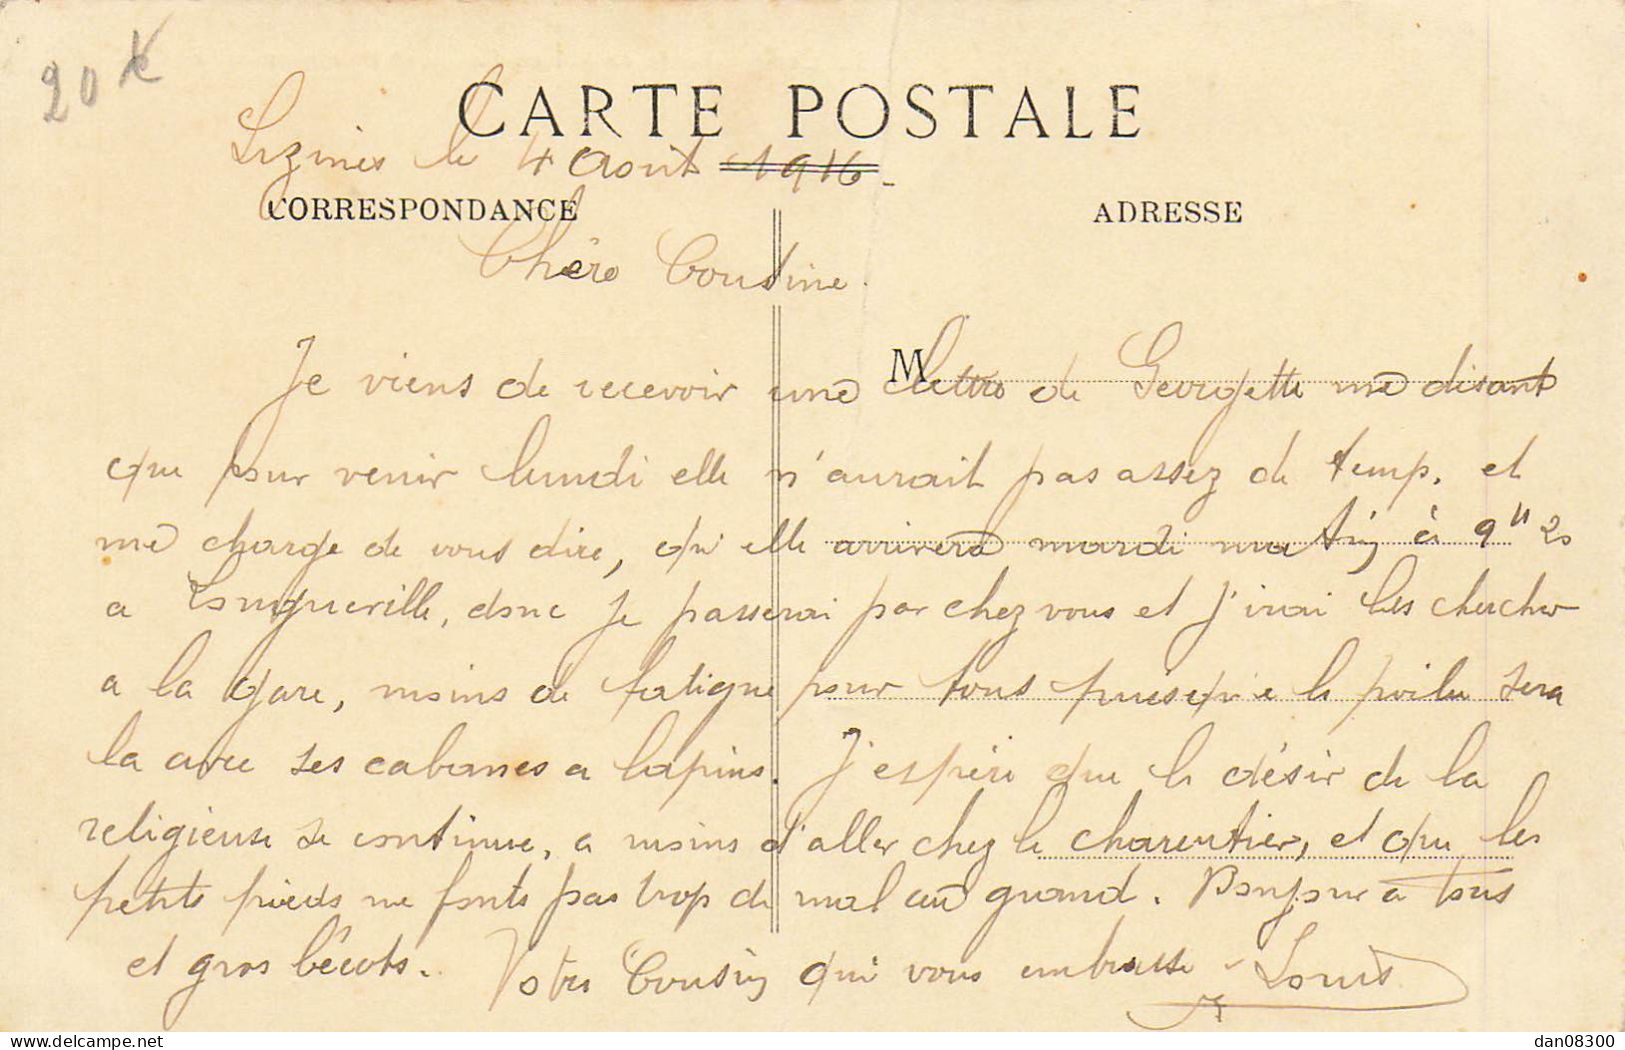 20 €
CARTE POSTALE
Lizines le 4 Aout 1916.
CORRESPONDANCE
ADRESSE
Chère Cousine.
M
Je viens de recevoir une lettre de Georgette me disant
que pour venir lundi elle n'aurait pas assez de temp. et
me charge de vous dire, qu'elle arrivera mardi matin à 9h 20
a Longueville, donc je passerai par chez vous et j'irai les chercher
a la gare, moins de fatigue pour tous puisque le poilu sera
la avec ses cabanes a lapins. J'espère que le désir de la
religieuse se continue, a moins d'aller chez le charcutier, et que les
petits pieds ne fonts pas trop de mal au grand. Bonjour a tous
et gros bécots. Votre Cousin qui vous embrasse - Louis
delcampe.net
dan08300